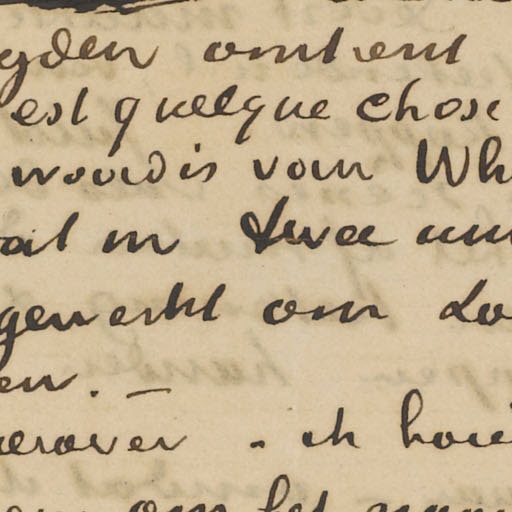 gden omtrent
est quelque chose
woord is van Wh
at in twee uur
gewerkt om do
en. —
erover - ik hou
om het